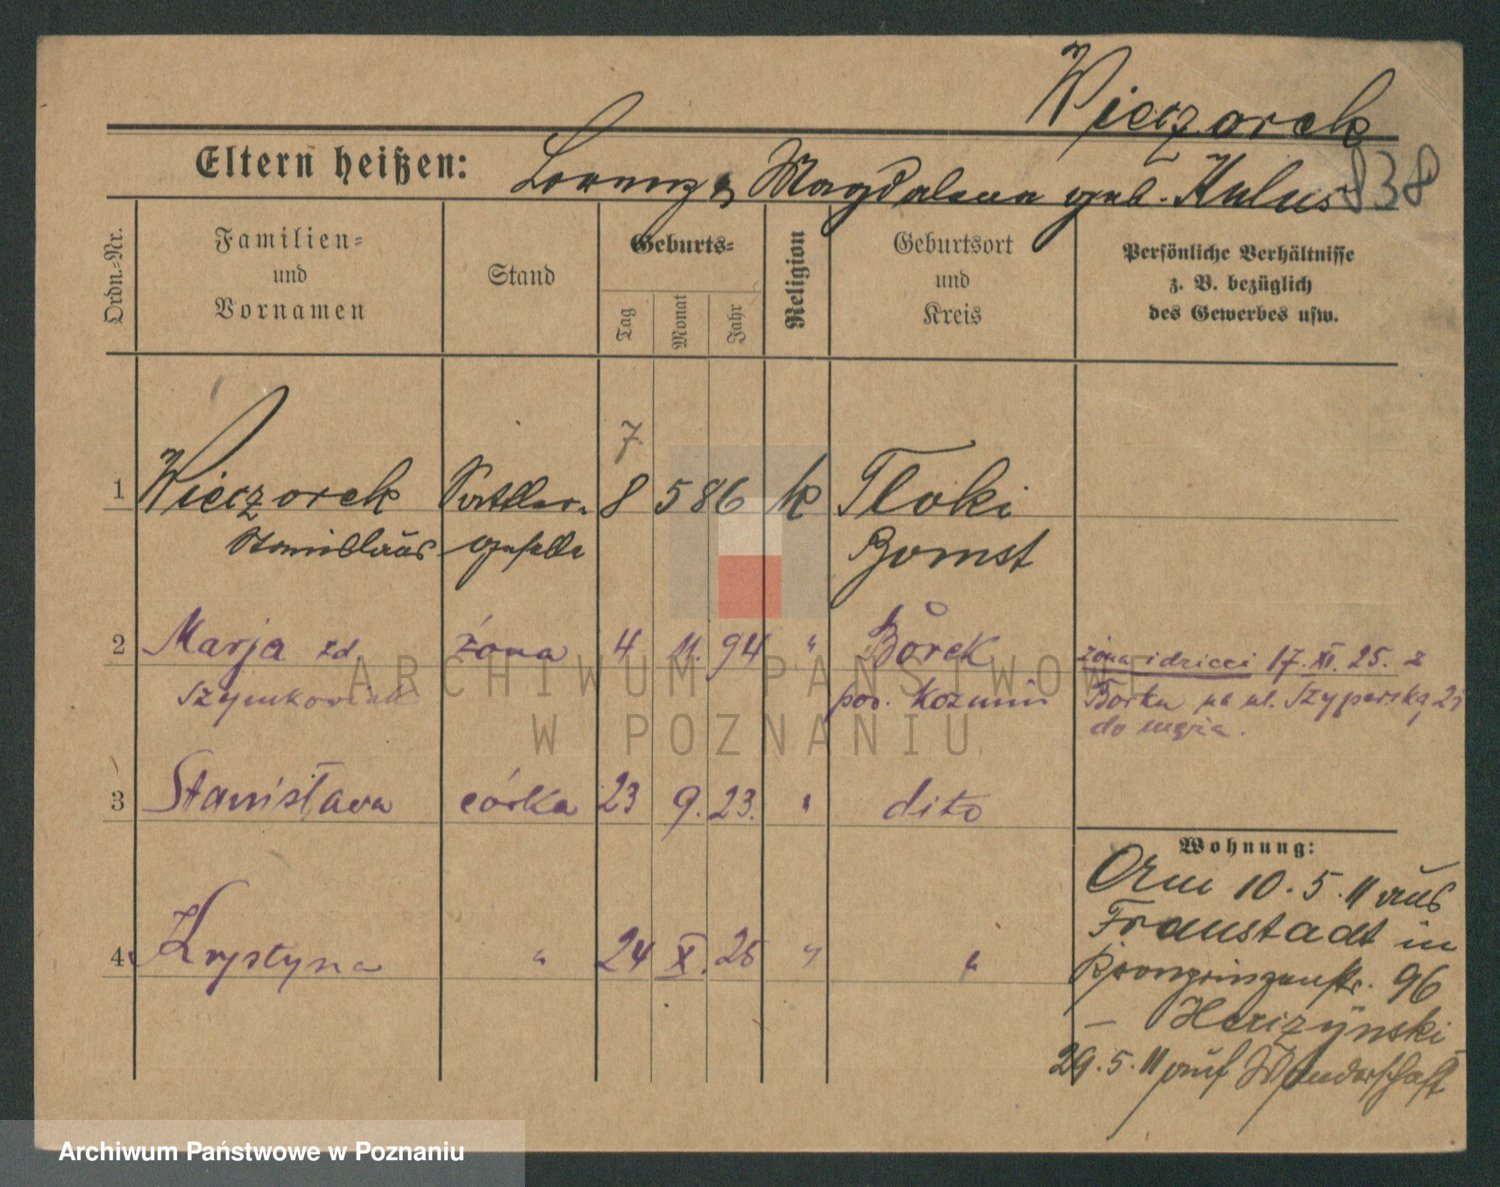 Wieczorek
Eltern heißen: Lorenz & Magdalena geb. Kulus
838
Ordn.-Nr.
Familien- und Vornamen
Stand
Geburts-
Tag
Monat
Jahr
Religion
Geburtsort und Kreis
Persönliche Verhältnisse
z. B. bezüglich
des Gewerbes usw.
7.
1 Wieczorek Sattler- 8 5 86 k Tloki
Stanislaus geselle Bomst
2 Marja zd. żona 4 11. 94 " Borek
Szymkowiak pow. Kozmin
żona i dzieci 17. XI. 25. z
Borku na ul. Szyperską 21
do męża.
3 Stanisława córka 23 9. 23. " dito
4 Krystyna " 24 X. 25 " "
Wohnung:
Am 10. 5. 11 aus
Fraustadt in
Kronprinzenstr. 96
–
29. 5. 11 auf Wanderschaft
ARCHIWUM PAŃSTWOWE
W POZNANIU
Archiwum Państwowe w Poznaniu